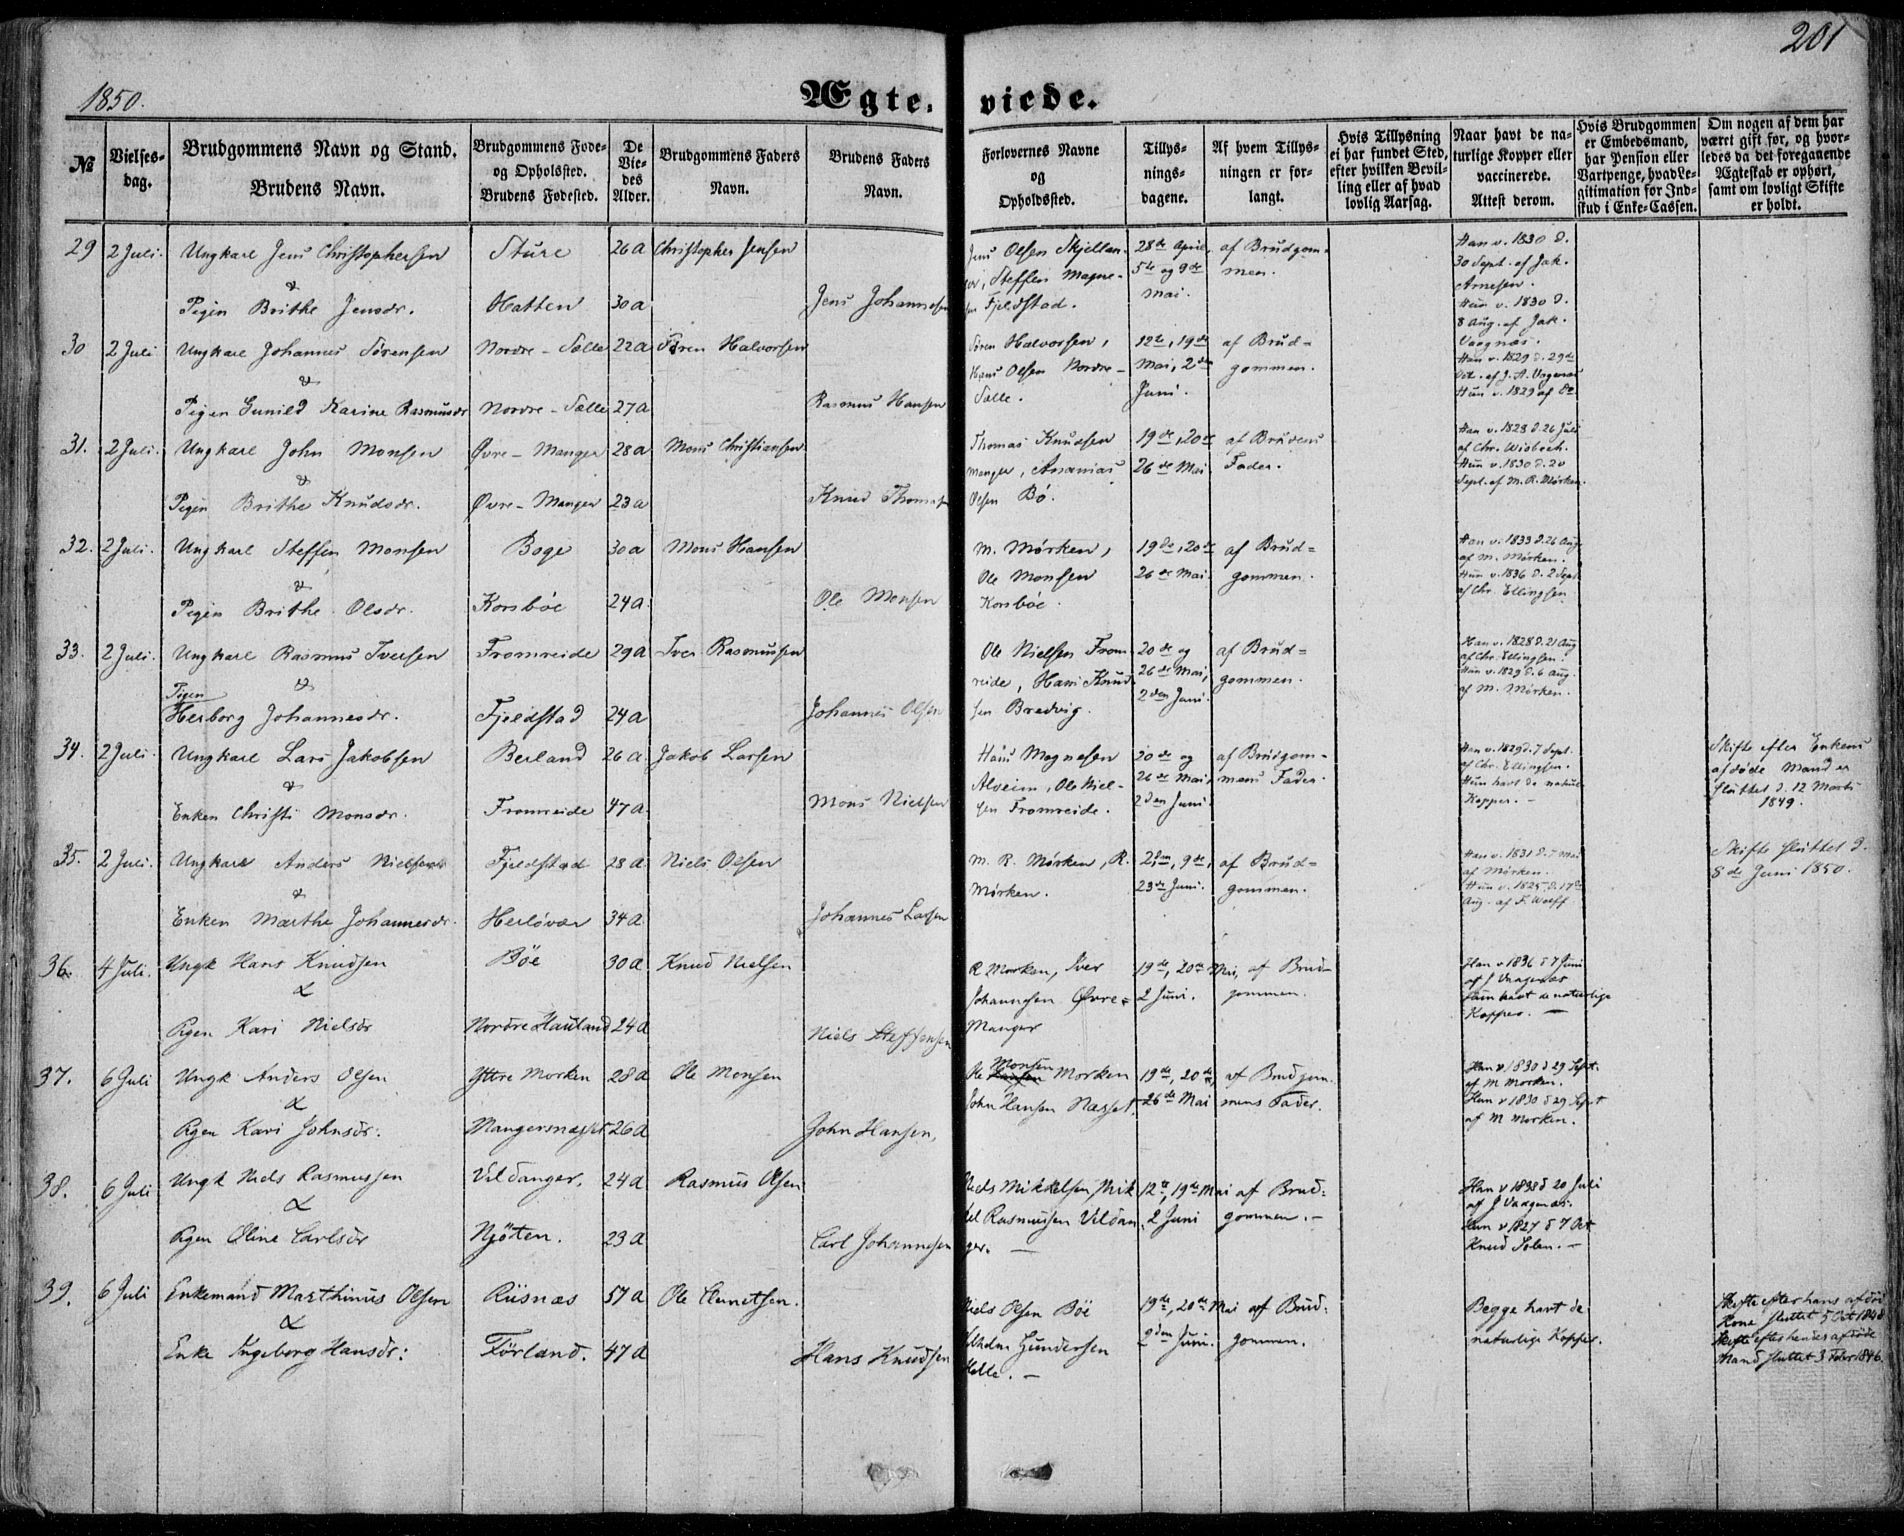 201
1850.
Ægte- viede.
№
Vielses-
dag.
Brudgommens Navn og Stand.
Brudens Navn.
Brudgommens Føde-
og Opholssted.
Brudens Fødested.
De
Vie-
des
Alder.
Brudgommens Faders
Navn.
Brudens Faders
Navn.
Forlovernes Navne
og
Opholdsted.
Tillys-
nings-
dagene.
Af hvem Tillys-
ningen er for-
langt.
Hvis Tillysning
ei har fundet Sted,
efter hvilken Bevil-
ling eller af hvad
lovlig Aarsag.
Naar havt de na-
turlige Kopper eller
vaccinerede.
Attest derom.
Hvis Brudgommen
er Embedsmand,
har Pension eller
Vartpenge, hvad Le-
gitimation for Ind-
skud i Enke-Cassen.
Om nogen af dem har
været gift før, og hvor-
ledes da det foregaaende
Ægteskab er ophørt,
samt om lovligt Skifte
er holdt.
29 2 Juli. Ungkarl Jens Christophersen Sture 26 a Christopher Jensen
&
Pigen Brithe Jensdr. Hatten 30 a Jens Johannesen
Jens Olsen Skjellan-
ger, Steffen Magne-
sen Fjeldstad.
28de April,
5te og 9de
Mai.
af Brudgom-
men.
Han v. 1830 d.
30 Sept. af Jak.
Arnesen.
Hun v. 1830 d.
8 Aug. af Jak.
Vaagnæs.
30 2 Juli Ungkarl Johannes Sørensen Nordre-Sælle 22 a Søren Halvorsen
&
Pigen Gunild Karine Rasmusdr Nordre-Sælle 27 a Rasmus Hansen
Søren Halvorsen,
Hans Olsen Nordre-
Sælle.
12te, 19de
Mai, 2den
Juni.
af Brud=
gommen.
Han v. 1829 d. 29de
Oct. af J. A. Vagenæs
Hun v. 1829 af Do
31. 2 Juli. Ungkarl John Monsen Øvre-Manger 28 a Mons Christiansen
&
Pigen Brithe Knudsdr. Øvre-Manger 23 a Knud Thomasen
Thomas Knudsen
Manger, Ananias
Olsen Bö.
19de, 20de
26de Mai
af Brudens
Fader.
Han v. 1828 d. 26 Juli
af Chr. Wisbech.
Hun v. 1830 d. 20
Sept. af M. R. Mørken.
32. 2 Juli. Ungkarl Steffen Monsen Boge 30 a Mons Hansen
&
Pigen Brithe Olsdr. Korsböe 24 a Ole Monsen
M. Mørken,
Ole Monsen
Korsböe.
19de, 20de
26de Mai
af Brud=
gommen.
Han v. 1833 d. 26 Aug.
af M. Mørken.
Hun v. 1836 d. 2 Sept.
af Chr. Ellingsen
33. 2 Juli. Ungkarl Rasmus Iversen Fromreide 29 a Iver Rasmussen
&
Pigen
Herborg Johannesdr. Fjeldstad 24 a Johannes Olsen
Ole Nielsen From
reide, Hans Knud
sen Bredvig.
20de og
26de Mai,
2den Juni.
af Brud=
gommen.
Han v. 1828 d. 21 Aug
af Chr. Ellingsen.
Hun v. 1829 d. 6 Aug.
af M. Mørken.
34. 2 Juli. Ungkarl Lars Jakobsen Berland 26 a Jakob Larsen
&
Enken Christi Monsdr. Fromreide 47 a Mons Nielsen
Hans Magnesen
Alveim, Ole Niel-
sen Fromreide.
20de og
26de Mai,
2den Juni.
af Brudgom-
mens Fader.
Han v. 1829 d. 7 Sept.
af Chr. Ellingsen.
Hun havt de naturl.
Kopper. —
Skifte efter Enkens
afdøde Mand er
sluttet d. 12 Marts
1849.
35. 2 Juli. Ungkarl Anders Nielsen Fjeldstad 28 a Niels Olsen
&
Enken Marthe Johannesdr. Herlövær 34 a Johannes Larsen
M. R. Mørken, R.
Mørken.
2den, 9de,
23de Juni.
af Brud=
gommen.
Han v. 1831 d. 7 Mai
af Mørken.
Hun v. 1825 d. 17de
Aug. af F. Wolff
Skifte sluttet d.
8de Juni 1850.
36. 4 Juli. Ungk Hans Knudsen Böe 30 a Knud Nielsen
&
Pigen Kari Nielsdr Nordre Hauland 24 a Niels Steffensen
R Morken, Iver
Johannesen Øvre=
Manger
19de, 20de Mai,
2 Juni.
af Brud-
gommen.
Han v 1836 d 7 Juni
af J Vaagenæs
Hun havt de naturlige
Kopper. —
37. 6 Juli Ungk Anders Olsen Yttre Morken 28 a Ole Monsen
&
Pigen Kari Johnsdr. Mangersnæsset 26 a John Hansen,
Ole Monsen Morken
John Hansen Næsset.
19de, 20de,
26de Mai
af Brudgom
mens Fader.
Han v 1830 d 29 Sept.
af M Morken.
Hun v 1830 d 29 Sept
af M Morken.
38. 6 Juli Ungk Niels Rasmussen Vildanger. 24 a Rasmus Olsen
&
Pigen Oline Carlsdr Njöten. 23 a Carl Johannesen
Niels Mikkelsen, Mik
kel Rasmussen Vildan
ger. —
12te, 19de Mai
2 Juni
af Brud:
gommen. —
Han v 1838 d 20 Juli
af J Vaagenæs.
Hun v 1827 d 7 Oct
Knud Solen. —
39. 6 Juli Enkemand Marthinus Olsen Riisnæs 57 a Ole Clemetsen.
&
Enke Ingeborg Hansdr: Förland. 47 a Hans Knudsen
Niels Olsen Böe
Wilhelm Gundersen
Helle. —
19de, 20de Mai
2den Juni.
af Brud:
gommen.
Begge havt de
naturlige Kopper.
Skifte efter hans afdöde
Kone sluttet 5 Oct 1848
Skifte efter hendes afdöde
Mand sluttet 3 Febr 1846.